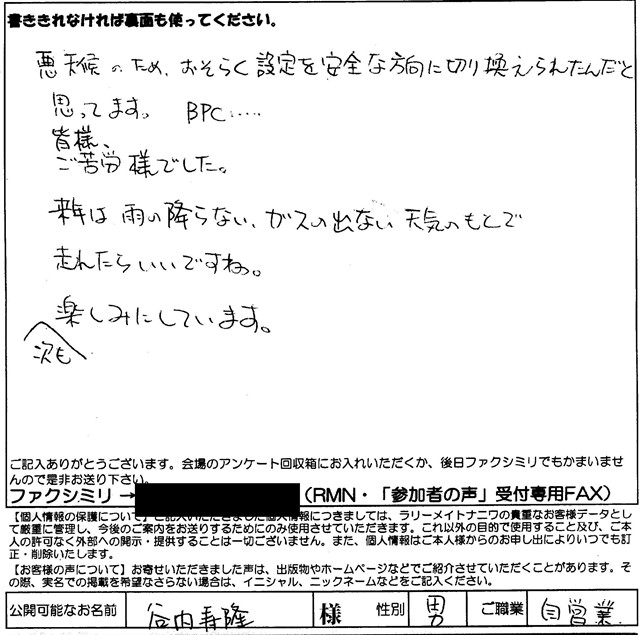 書ききれなければ裏面も使ってください。
悪天候のため、おそらく設定を安全な方向に切り換えられたんだと
思ってます。 BPC……
皆様、
ご苦労様でした。
来年は雨の降らない、ガスの出ない天気のもとで
走れたらいいですねっ。
楽しみにしています。
次も
ご記入ありがとうございます。会場のアンケート回収箱にお入れいただくか、後日ファクシミリでもかまいませ
んので是非お送り下さい。
ファクシミリ→ (RMN・「参加者の声」受付専用FAX)
【個人情報の保護について】ご記入いただきました個人情報につきましては、ラリーメイトナニワの貴重なお客様データとし
て厳重に管理し、今後のご案内をお送りするためにのみ使用させていただきます。これ以外の目的で使用すること及び、ご本
人の許可なく外部への開示・提供することは一切ございません。また、個人情報はご本人様からのお申し出によりいつでも訂
正・削除いたします。
【お客様の声について】お寄せいただきました声は、出版物やホームページなどでご紹介させていただくことがあります。そ
の際、実名での掲載を希望なさらない場合は、イニシャル、ニックネームなどをご記入ください。
公開可能なお名前 谷内寿隆 様 性別 男 ご職業 自営業